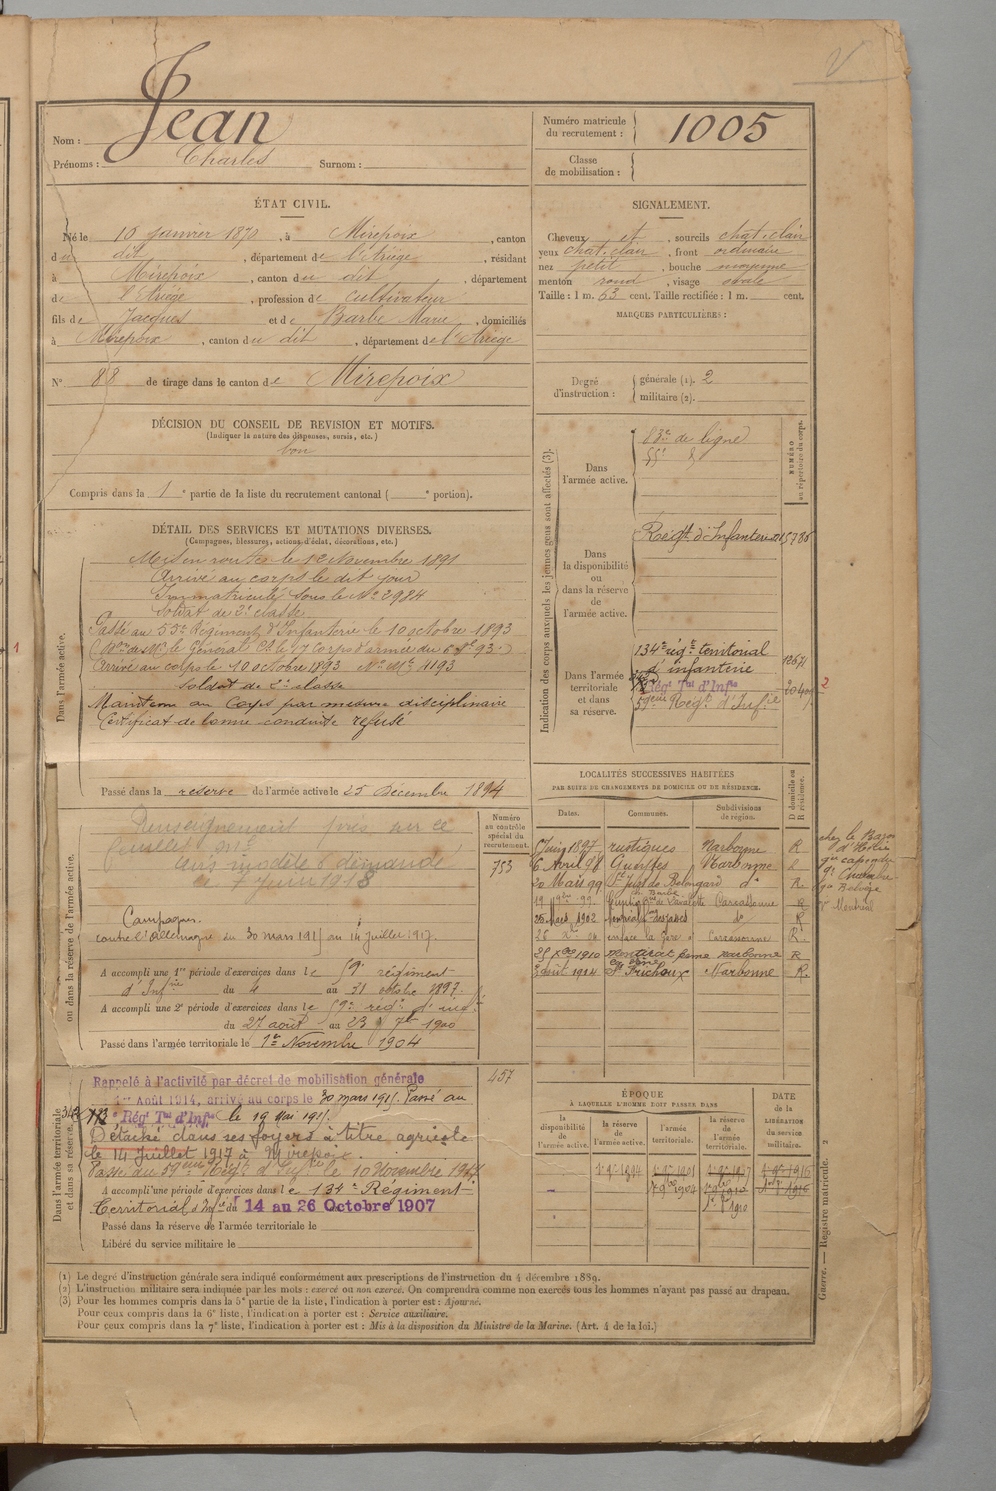 Nom : Jean
Prénoms : Charles Surnom :
Numéro matricule du recrutement : 1005
Classe de mobilisation :
ÉTAT CIVIL.
Né le 10 janvier 1870, à Mirepoix, canton
du dit, département de l'Ariège, résidant
à Mirepoix, canton du dit, département
de l'Ariège, profession de cultivateur
fils de Jacques et de Barbe Marie, domiciliés
à Mirepoix, canton du dit, département de l'Ariège
N° 88 de tirage dans le canton de Mirepoix
DÉCISION DU CONSEIL DE REVISION ET MOTIFS.
(Indiquer la nature des dispenses, sursis, etc.)
bon
Compris dans la 1e partie de la liste du recrutement cantonal ( e portion).
DÉTAIL DES SERVICES ET MUTATIONS DIVERSES.
(Campagnes, blessures, actions d'éclat, décorations, etc.)
Dans l'armée active.
Mis en route le 12 Novembre 1891
Arrivé au corps le dit jour
Immatriculé sous le No 2984
Soldat de 2e classe
Passé au 55e Régiment d'Infanterie le 10 octobre 1893
arrivé au corps le 10 octobre 1893 No Mle 4193
Soldat de 2e classe
Maintenu au Corps par mesure disciplinaire
Certificat de bonne conduite refusé
Passé dans la reserve de l'armée active le 25 décembre 1894
ou dans la réserve de l'armée active.
Numéro au contrôle spécial du recrutement.
753
Renseignement pris sur ce
feuillet
demande
le 7 Juin 1918
Campagne.
contre l'Allemagne du 30 mars 1915 au 14 juillet 1917.
A accompli une 1re période d'exercices dans le 59e régiment
d'Infrie du 4 au 31 octobre 1897.
A accompli une 2e période d'exercices dans le 59e rég. d'inf.
du 27 août au 23 7bre 1900
Passé dans l'armée territoriale le 1er Novembre 1904
Dans l'armée territoriale et dans sa réserve.
457
Rappelé à l'activité par décret de mobilisation générale
1er Août 1914, arrivé au corps le 30 mars 1915. Passé au
Régt Tal d'Infie le 19 Mai 1915.
Détaché dans ses foyers à titre agricole
le 14 Juillet 1917 à Mirepoix.
Passé au 59eme Régt d'Infie le 10 Novembre 1917
A accompli une période d'exercices dans le 134e Régiment
Territorial d'Infie du 14 au 26 Octobre 1907
Passé dans la réserve de l'armée territoriale le
Libéré du service militaire le
SIGNALEMENT.
Cheveux et, sourcils chat. clair
yeux chat. clair, front ordinaire
nez petit, bouche moyenne
menton rond, visage ovale
Taille : 1 m. 63 cent. Taille rectifiée : 1 m. cent.
MARQUES PARTICULIÈRES :
Degré d'instruction : générale (1). 2
militaire (2).
Indication des corps auxquels les jeunes gens sont affectés (3).
NUMÉRO au répertoire du corps.
Dans l'armée active.
83e de ligne
55e d°
Dans la disponibilité ou dans la réserve de l'armée active.
Régt. d'Infanterie
Dans l'armée territoriale et dans sa réserve.
134e régt territorial
d'infanterie
Régt Tal d'Infie
59eme Régt d'Infie
2
LOCALITÉS SUCCESSIVES HABITÉES
PAR SUITE DE CHANGEMENTS DE DOMICILE OU DE RÉSIDENCE.
Dates. Communes. Subdivisions de région. D domicile ou R résidence.
5 Juin 1897 rustiques Narbonne R
6 Avril 98 Narbonne
20 Mars 99 d° R
19 9bre 99 Carcassonne R
25 Mars 1902 d° R
en face la gare Carcassonne R
1910 Narbonne R
3 août 1914 St Frichoux Narbonne R.
ÉPOQUE
A LAQUELLE L'HOMME DOIT PASSER DANS
la disponibilité de l'armée active. la réserve de l'armée active. l'armée territoriale. la réserve de l'armée territoriale. DATE de la LIBÉRATION du service militaire.
(1) Le degré d'instruction générale sera indiqué conformément aux prescriptions de l'instruction du 4 décembre 1889.
(2) L'instruction militaire sera indiquée par les mots : exercé ou non exercé. On comprendra comme non exercés tous les hommes n'ayant pas passé au drapeau.
(3) Pour les hommes compris dans la 5e partie de la liste, l'indication à porter est : Ajourné.
Pour ceux compris dans la 6e liste, l'indication à porter est : Service auxiliaire.
Pour ceux compris dans la 7e liste, l'indication à porter est : Mis à la disposition du Ministre de la Marine. (Art. 4 de la loi.)
Guerre. — Registre matricule. 2